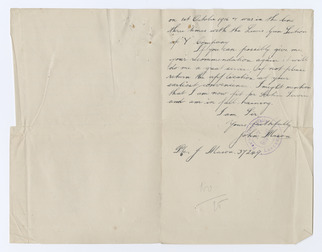 on 1st October 1916 & was in the line
three times with the Lewis Gun Section
of Y Company
If you can possibly give me
your recommendation again it will
do me a great service, if not please
return the application at your
earliest convenience. I might mention
that I am now fit for Active Service
and am in full training
I am Sir
Yours faithfully
John Mason
Pte J Mason 37269